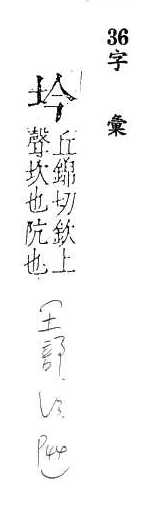 36字彙
坅
丘錦切欽上
聲坎也阬也
P44